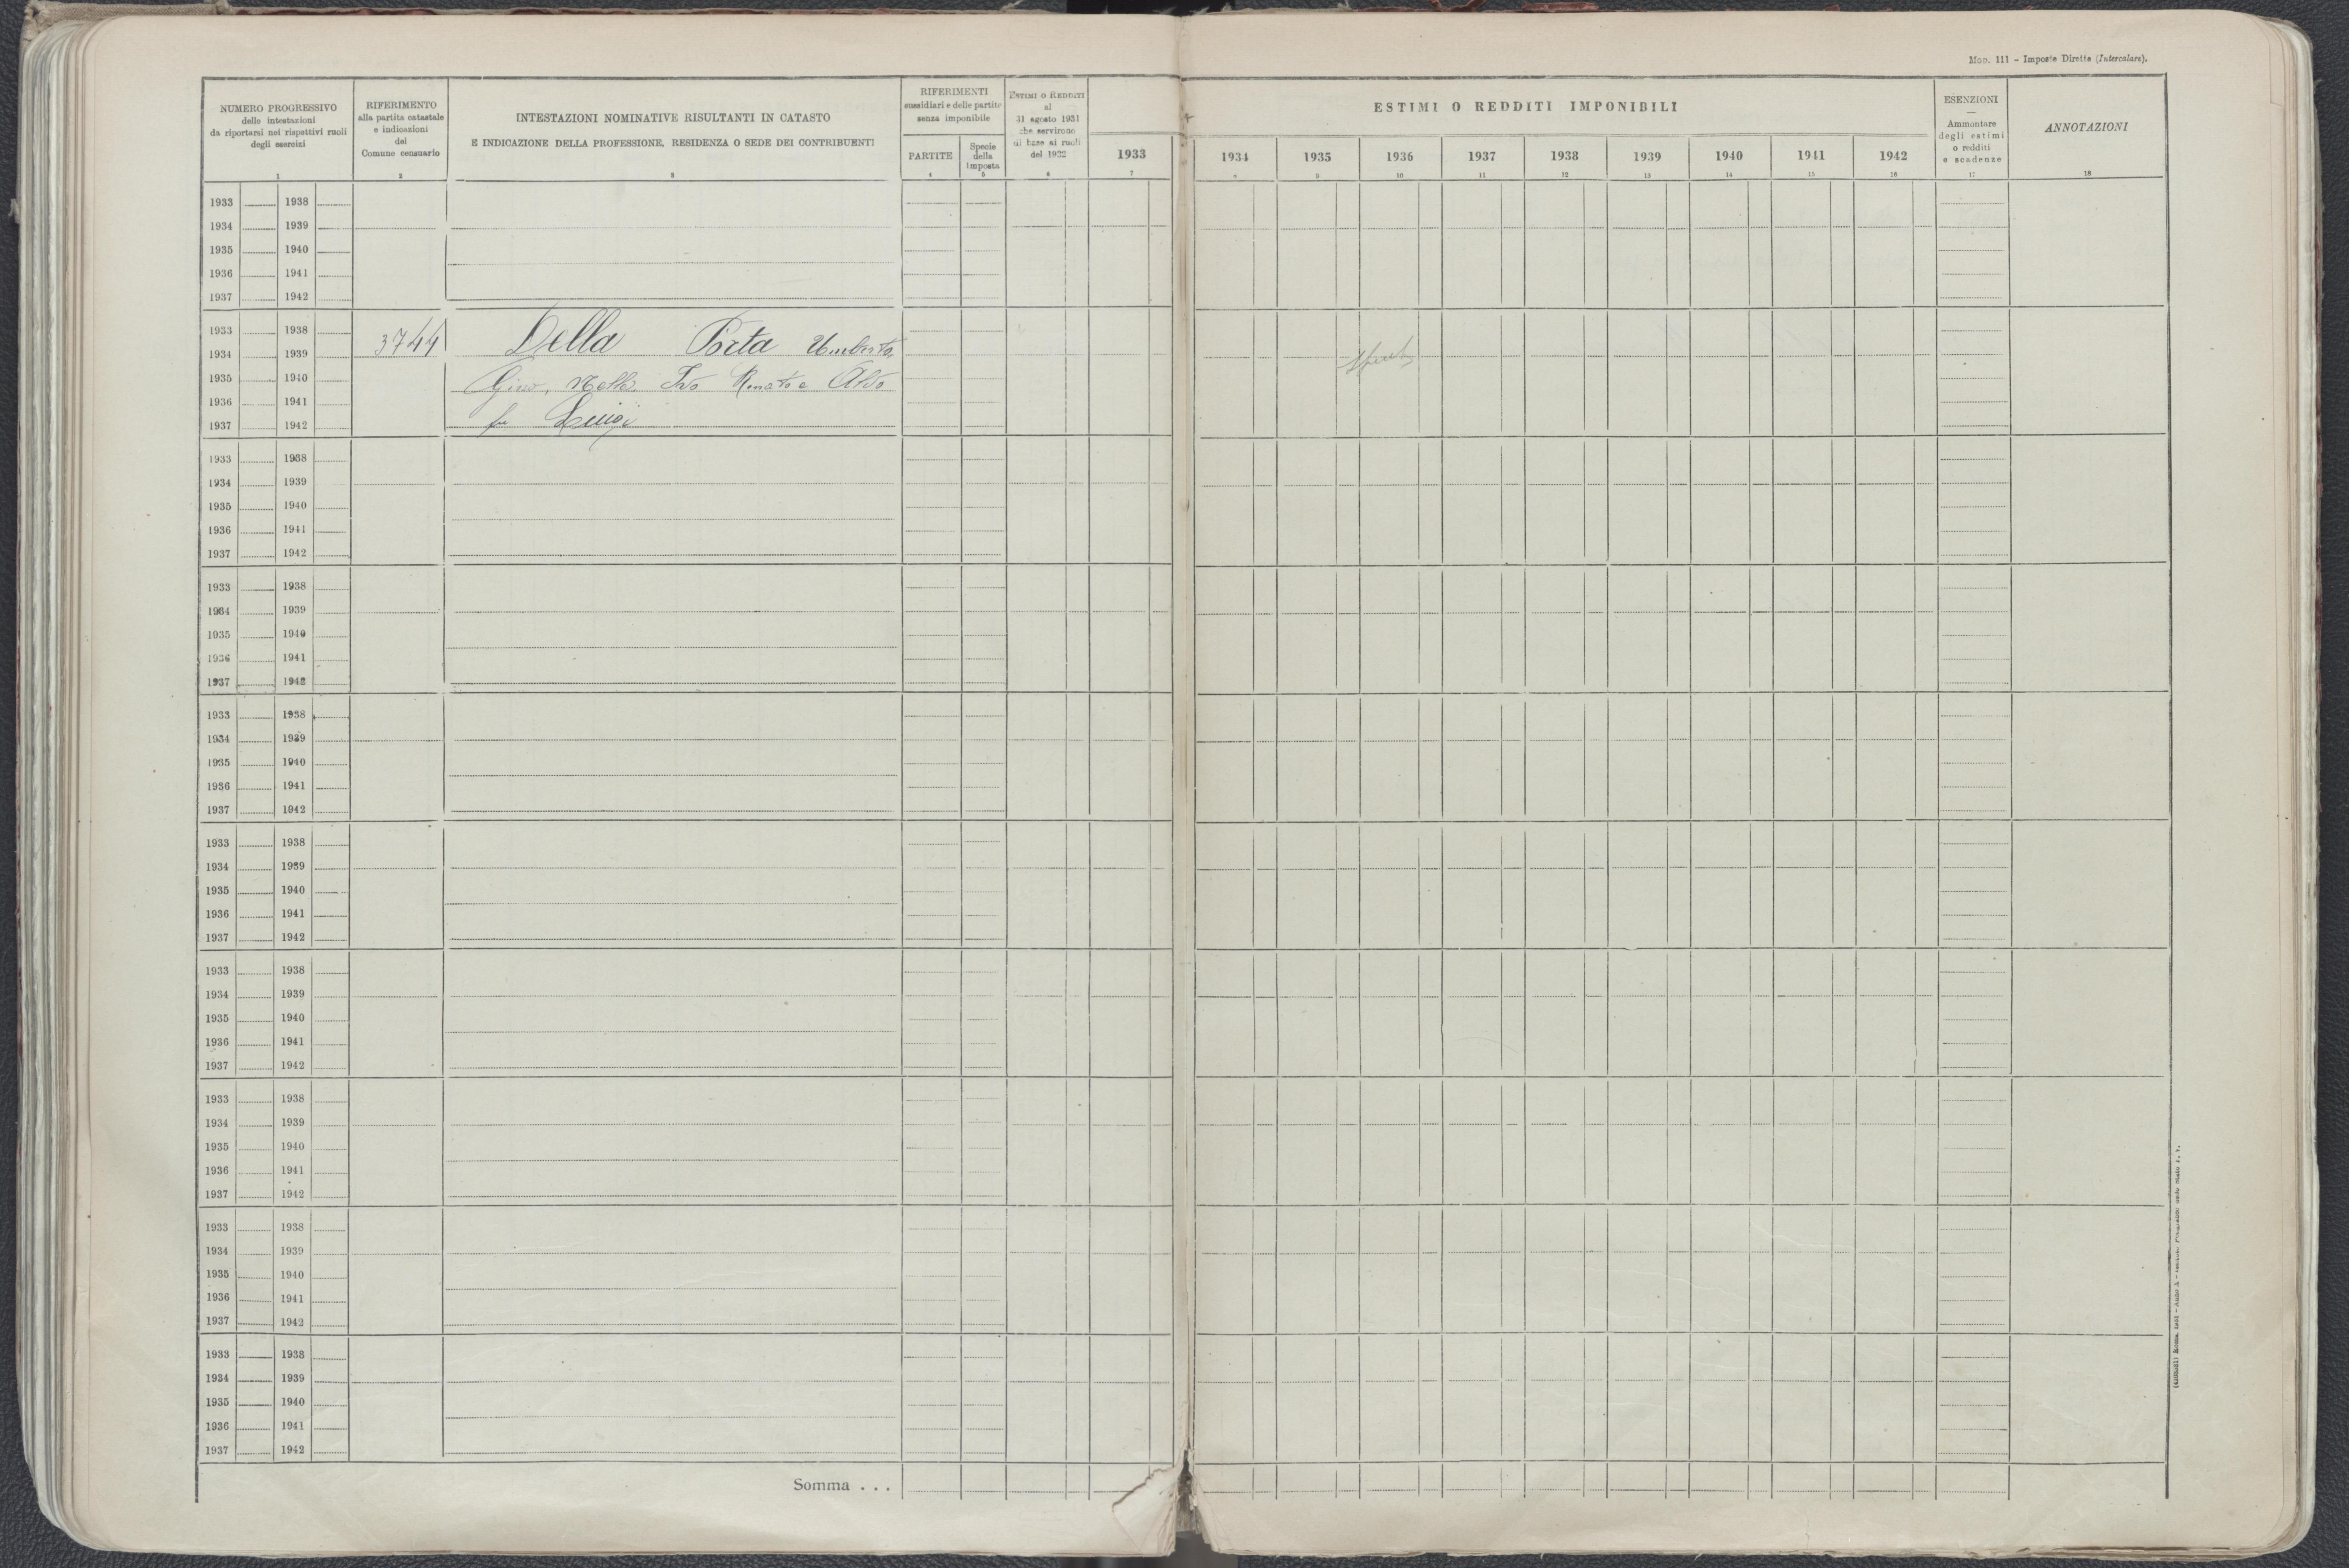 Mod. 111 - Imposte Dirette (Intercalare).
NUMERO PROGRESSIVO
delle intestazioni
da riportarsi nei rispettivi ruoli
degli esercizi
1
RIFERIMENTO
alla partita catastale
e indicazioni
del
Comune censuario
2
INTESTAZIONI NOMINATIVE RISULTANTI IN CATASTO
E INDICAZIONE DELLA PROFESSIONE, RESIDENZA O SEDE DEI CONTRIBUENTI
3
RIFERIMENTI
sussidiari e delle partite
senza imponibile
PARTITE
4
Specie
della
imposta
5
ESTIMI O REDDITI
al
31 agosto 1931
che servirono
di base ai ruoli
del 1932
6
ESTIMI O REDDITI IMPONIBILI
1933 1934 1935 1936 1937 1938 1939 1940 1941 1942
7 9 10 11 12 13 14 15 16
ESENZIONI
Ammontare
degli estimi
o redditi
e scadenze
17
ANNOTAZIONI
18
1933 1938
1934 1939
1935 1940
1936 1941
1937 1942
1933 1938
3744 Della Porta Umberto,
1934 1939
1935 1940
Gino, Ivo Renato e Aldo
1936 1941
1937 1942
fu Luigi
1933 1938
1934 1939
1935 1940
1936 1941
1937 1942
1933 1938
1934 1939
1935 1940
1936 1941
1937 1942
1933 1938
1934 1939
1935 1940
1936 1941
1937 1942
1933 1938
1934 1939
1935 1940
1936 1941
1937 1942
1933 1938
1934 1939
1935 1940
1936 1941
1937 1942
1933 1938
1934 1939
1935 1940
1936 1941
1937 1942
1933 1938
1934 1939
1935 1940
1936 1941
1937 1942
1933 1938
1934 1939
1935 1940
1936 1941
1937 1942
Somma . . .